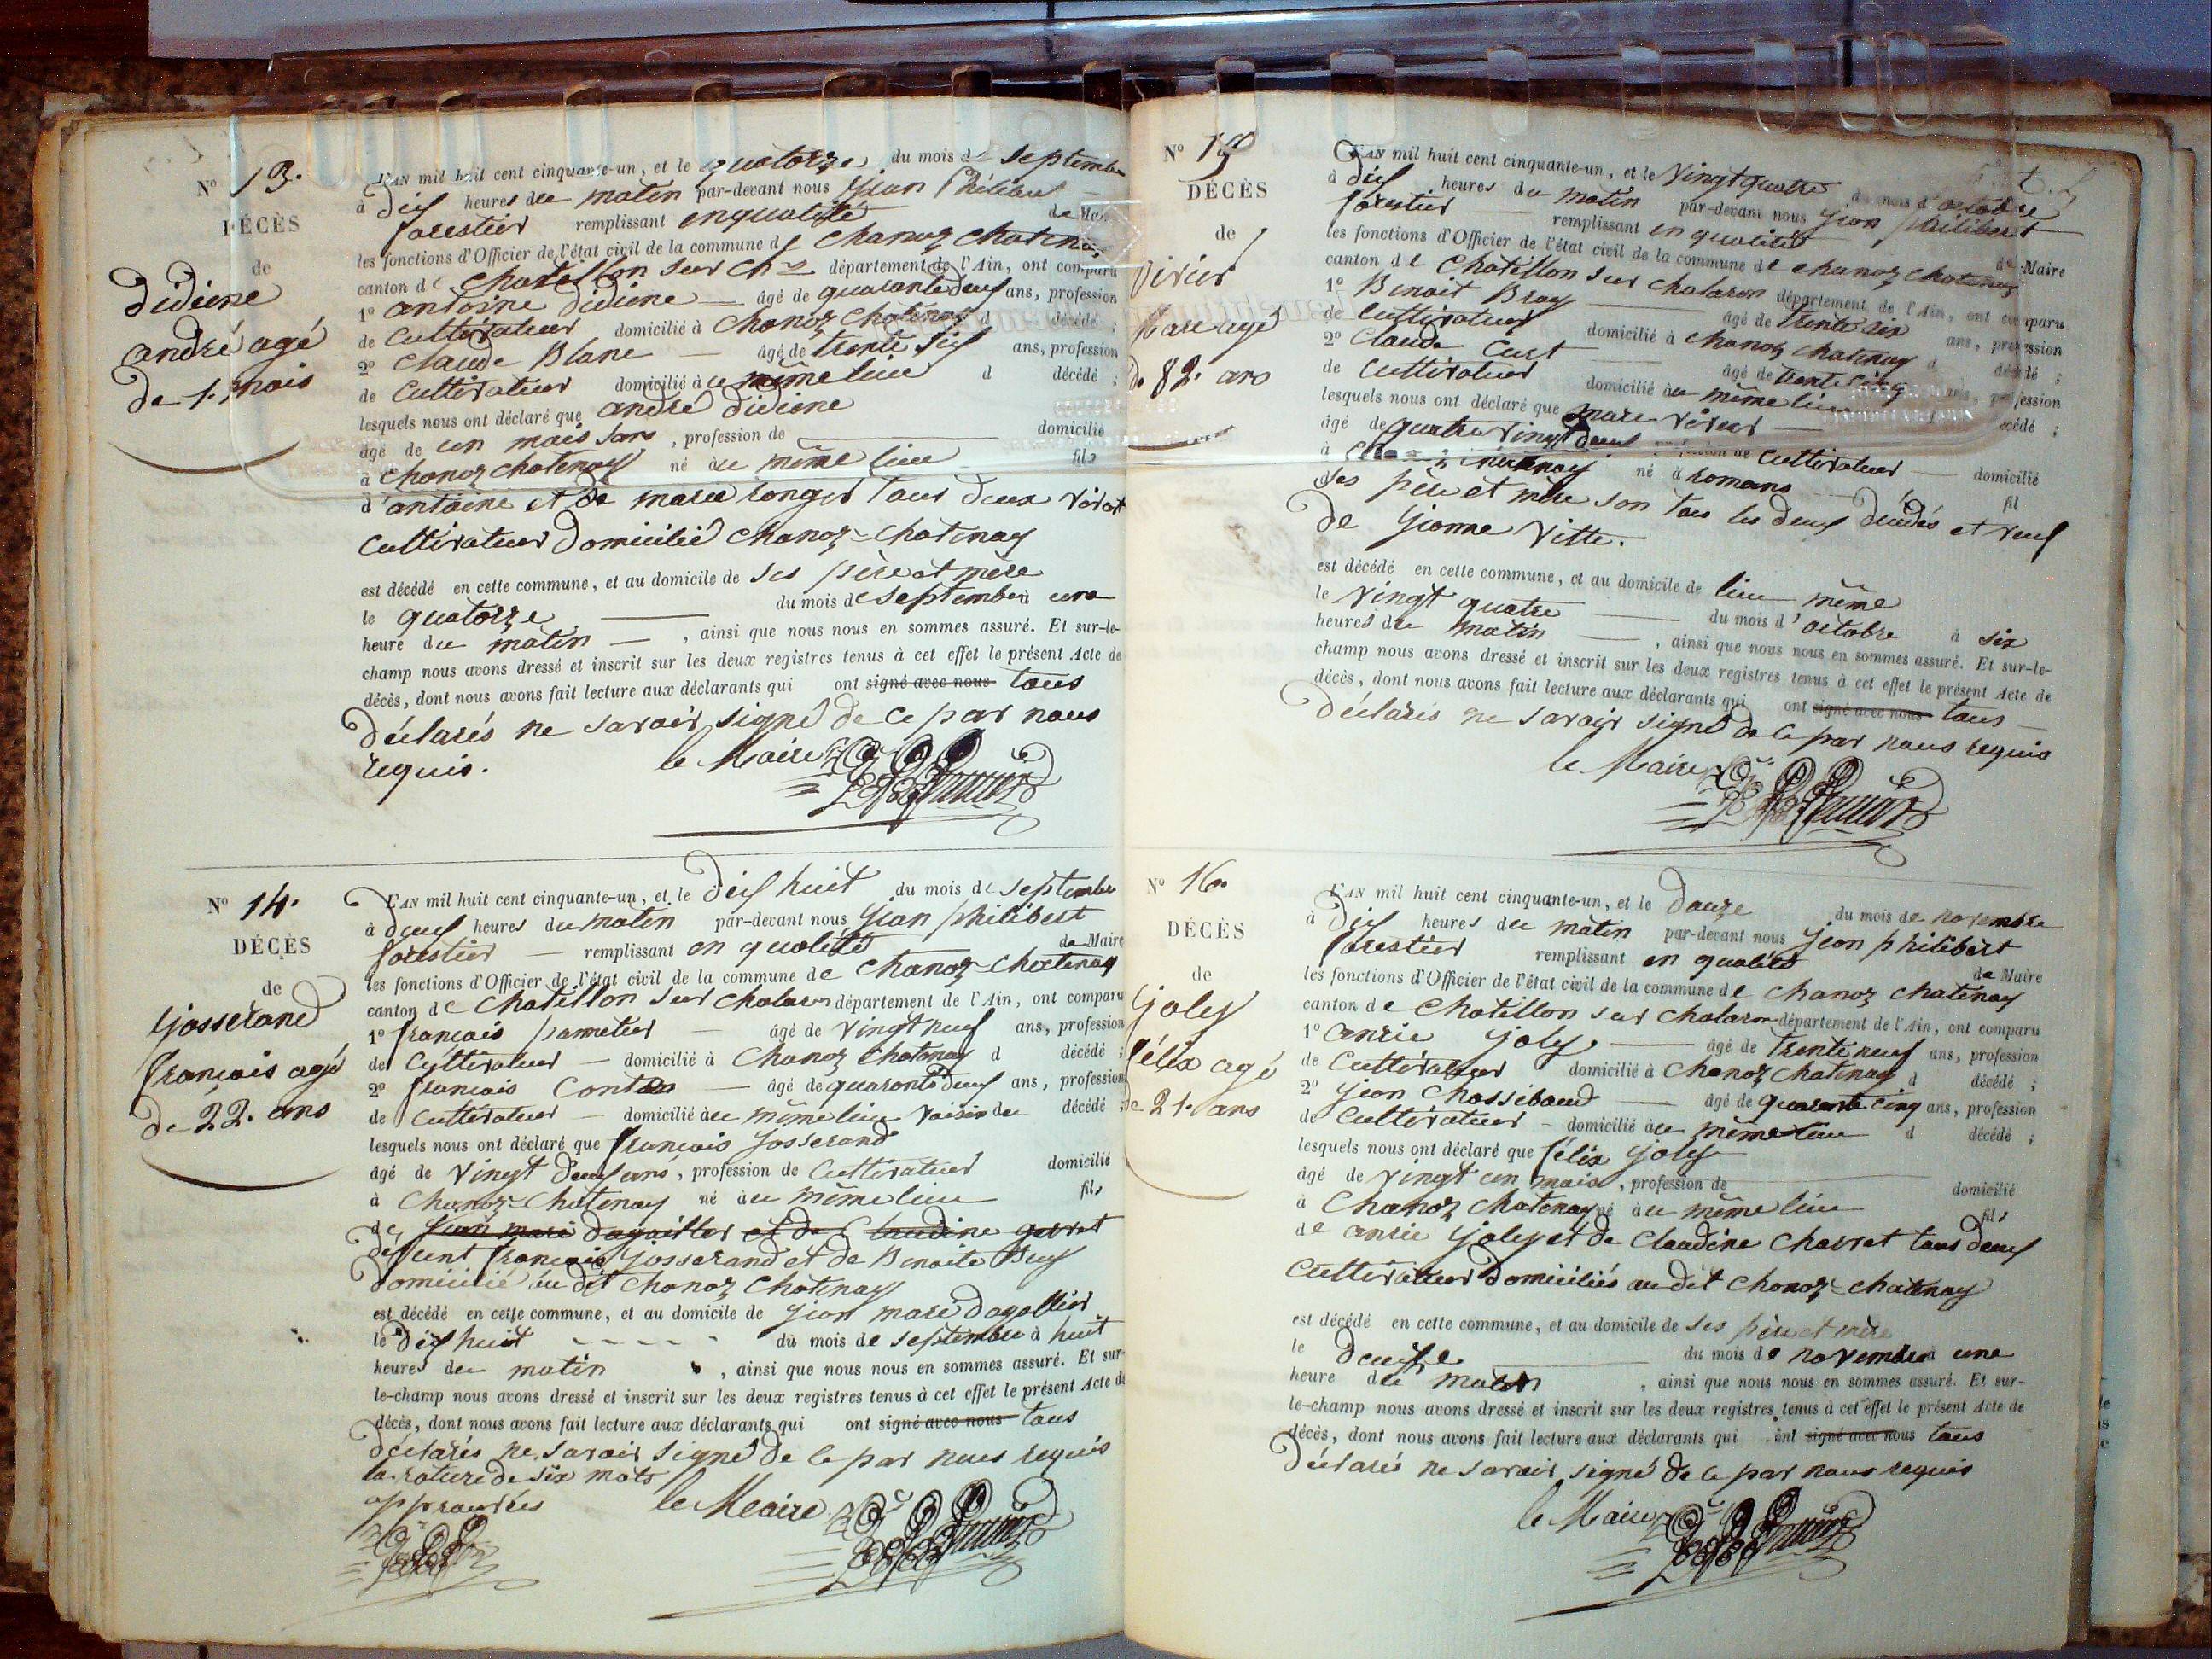 N° 13.
DÉCÈS
de
Didiene
andré agé
de 1. mois
L'AN mil huit cent cinquante-un, et le quatorze du mois de septembre
à dix heures du matin par-devant nous Jean Philibert
forestier remplissant en qualité de Maire
les fonctions d'Officier de l'état civil de la commune de Chanoz Chatenay
canton de Chatillon sur Ch département de l'Ain, ont comparu
1° antoine Didiene — âgé de quarante deux ans, profession
de Cultivateur domicilié à Chanoz Chatenay d décédé ;
2° Claude Blanc — âgé de trente six ans, profession
de Cultivateur domicilié à u même lieu d décédé ;
lesquels nous ont déclaré que andré Didiene
âgé de un mois , profession de domicilié
à Chanoz Chatenay né au même lieu fils
d'antoine et de marie tous deux vivant
Cultivateur Domicilié Chanoz-Chatenay
est décédé en cette commune, et au domicile de ses père et mère
le quatorze du mois de septembre à une
heure du matin — , ainsi que nous nous en sommes assuré. Et sur-le-
champ nous avons dressé et inscrit sur les deux registres tenus à cet effet le présent Acte de
décès, dont nous avons fait lecture aux déclarants qui ont signé avec nous tous
Déclarés ne savoir signé de ce par nous
requis. le Maire
N° 14.
DÉCÈS
de
Josserand
françois agé
de 22. ans
L'AN mil huit cent cinquante-un, et le Dix huit du mois de septembre
à deux heures du matin par-devant nous Jean philibert
forestier — remplissant en qualité de Maire
les fonctions d'Officier de l'état civil de la commune de Chanoz-Chatenay
canton de Chatillon sur Chalaron département de l'Ain, ont comparu
1° françois — âgé de vingt neuf ans, profession
de Cultivateur — domicilié à Chanoz Chatenay d décédé ;
2° françois — âgé de quarante deux ans, profession
de Cultivateur — domicilié à u même lieu voisin du décédé ;
lesquels nous ont déclaré que françois Josserand
âgé de vingt deux ans, profession de Cultivateur domicilié
à Chanoz-Chatenay né à u même lieu fils
de Jean marie Dagallier et de Claudine
défunt françois Josserand et de Benoite Buy
domicilié au dit Chanoz Chatenay
est décédé en cette commune, et au domicile de Jean marie Dagallier
le Dix huit du mois de septembre à huit
heures du matin , ainsi que nous nous en sommes assuré. Et sur-
le-champ nous avons dressé et inscrit sur les deux registres tenus à cet effet le présent Acte de
décès, dont nous avons fait lecture aux déclarants qui ont signé avec nous tous
déclarés ne savoir signé de ce par nous requis
la rature de six mots
approuvées le Maire
N° 15
DÉCÈS
de
Vivier
Marc agé
de 82. ans
L'AN mil huit cent cinquante-un, et le vingt quatre du mois d'octobre
à dix heures du matin par-devant nous Jean philibert
forestier remplissant en qualité de Maire
les fonctions d'Officier de l'état civil de la commune de Chanoz Chatenay
canton de Chatillon sur Chalaron département de l'Ain, ont comparu
1° Benoit Bray âgé de trente six ans, profession
de Cultivateur domicilié à Chanoz Chatenay d décédé ;
2° Claude âgé de trente cinq ans, profession
de Cultivateur domicilié à u même lieu décédé ;
lesquels nous ont déclaré que marc vivier
âgé de quatre vingt deux profession de Cultivateur domicilié
à Chatenay né à romans fil
des père et mère son tous les deux décédés et veuf
De Jeanne Vitte.
est décédé en cette commune, et au domicile de lieu même
le vingt quatre du mois d'octobre à six
heures du matin , ainsi que nous nous en sommes assuré. Et sur-le-
champ nous avons dressé et inscrit sur les deux registres tenus à cet effet le présent Acte de
décès, dont nous avons fait lecture aux déclarants qui ont signé avec nous tous
Déclarés ne savoir signé de ce par nous requis
le Maire
N° 16.
DÉCÈS
de
Joly
félix agé
de 21. ans
L'AN mil huit cent cinquante-un, et le Douze du mois de novembre
à Dix heures du matin par-devant nous Jean philibert
forestier remplissant en qualité de Maire
les fonctions d'Officier de l'état civil de la commune de Chanoz Chatenay
canton de Chatillon sur Chalaron département de l'Ain, ont comparu
1° anrie Joly. âgé de trente neuf ans, profession
de Cultivateur domicilié à Chanoz Chatenay d décédé ;
2° Jean Chassiboud — âgé de quarante cinq ans, profession
de Cultivateur – domicilié à u même lieu d décédé ;
lesquels nous ont déclaré que félix Joly
âgé de vingt un mois , profession de domicilié
à Chanoz Chatenay né à u même lieu fils
de anrie Joly et de Claudine Charvet tous deux
Cultivateur Domiciliés au dit Chanoz-Chatenay
est décédé en cette commune, et au domicile de ses père et mère
le douze du mois de novembre à une
heure du matin , ainsi que nous nous en sommes assuré. Et sur-
le-champ nous avons dressé et inscrit sur les deux registres tenus à cet effet le présent Acte de
décès, dont nous avons fait lecture aux déclarants qui ont signé avec nous tous
Déclarés ne savoir signé de ce par nous requis
le Maire